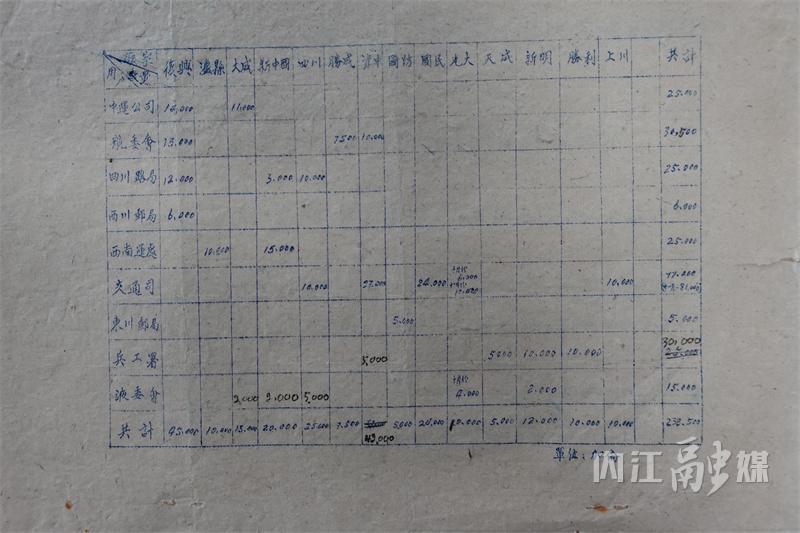 廠家 復興 瀘縣 大成 新中國 四川 勝成 國防 國民 光大 天成 新明 勝利 上川 共計
用戶
中運公司 11,000 25.000
航委會 13.000 7500 10.000 30,500
四川路局 12.000 3.000 10.000 25.000
西川郵局 6,000 6.000
西南運處 10.000 15.000 25.000
交通司 10.000 27.000 24.000 10.000
東川郵局 5.000 5.000
兵工署 5,000 5000 10.000 10.000 30,000
液委會 2,000 5,000 2.000 15.000
共計 45.000 10.000 13.000 20.000 25000 7.500 5,000 24,000 10.000 5.000 12.000 10.000 10.000 232.500
42,000
單位:加侖
内江融媒